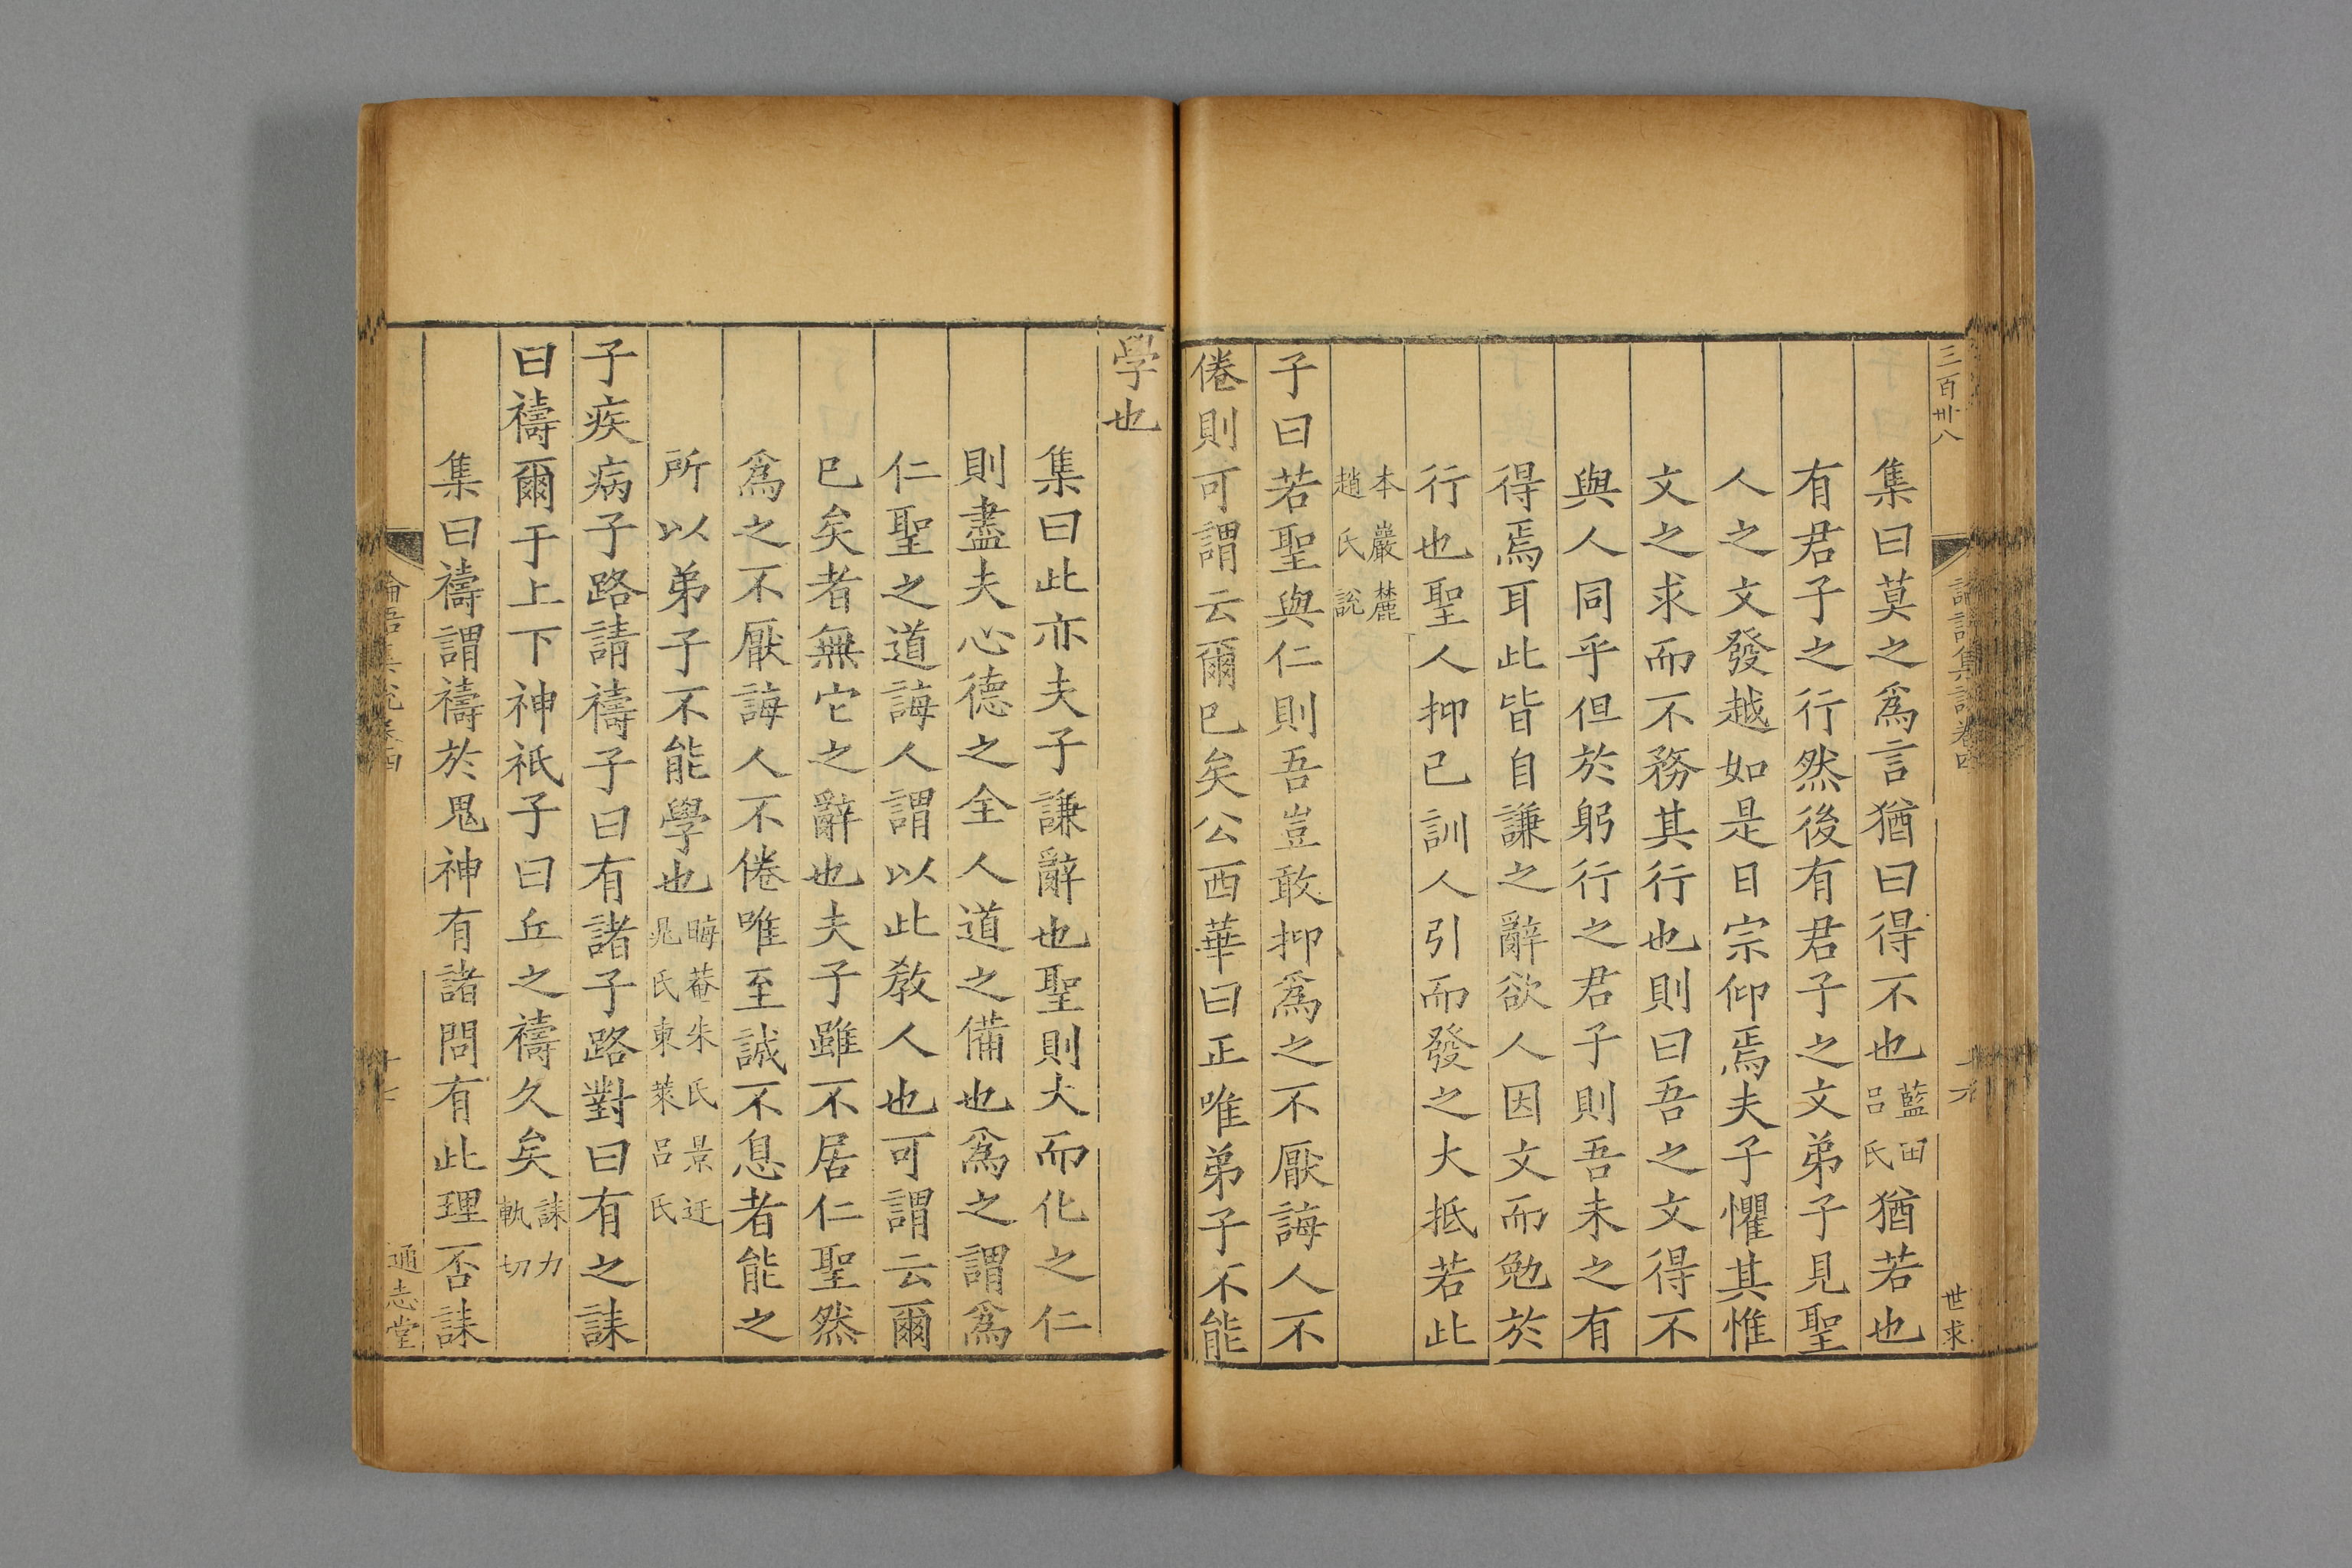 三百卅八
論語集說卷四
十六
世求
集曰莫之爲言猶曰得不也藍田呂氏猶若也
有君子之行然後有君子之文弟子見聖
人之文發越如是日宗仰焉夫子懼其惟
文之求而不務其行也則曰吾之文得不
與人同乎但於躬行之君子則吾未之有
得焉耳此皆自謙之辭欲人因文而勉於
行也聖人抑已訓人引而發之大抵若此
本巖麓趙氏說
子曰若聖與仁則吾豈敢抑爲之不厭誨人不
倦則可謂云爾已矣公西華曰正唯弟子不能
學也
集曰此亦夫子謙辭也聖則大而化之仁
則盡夫心德之全人道之備也爲之謂爲
仁聖之道誨人謂以此教人也可謂云爾
已矣者無它之辭也夫子雖不居仁聖然
爲之不厭誨人不倦唯至誠不息者能之
所以弟子不能學也晦菴朱氏景迂晁氏東萊呂氏
子疾病子路請禱子曰有諸子路對曰有之誄
曰禱爾于上下神祇子曰丘之禱久矣誄力軌切
集曰禱謂禱於鬼神有諸問有此理否誄
論語集說卷四
十七
通志堂